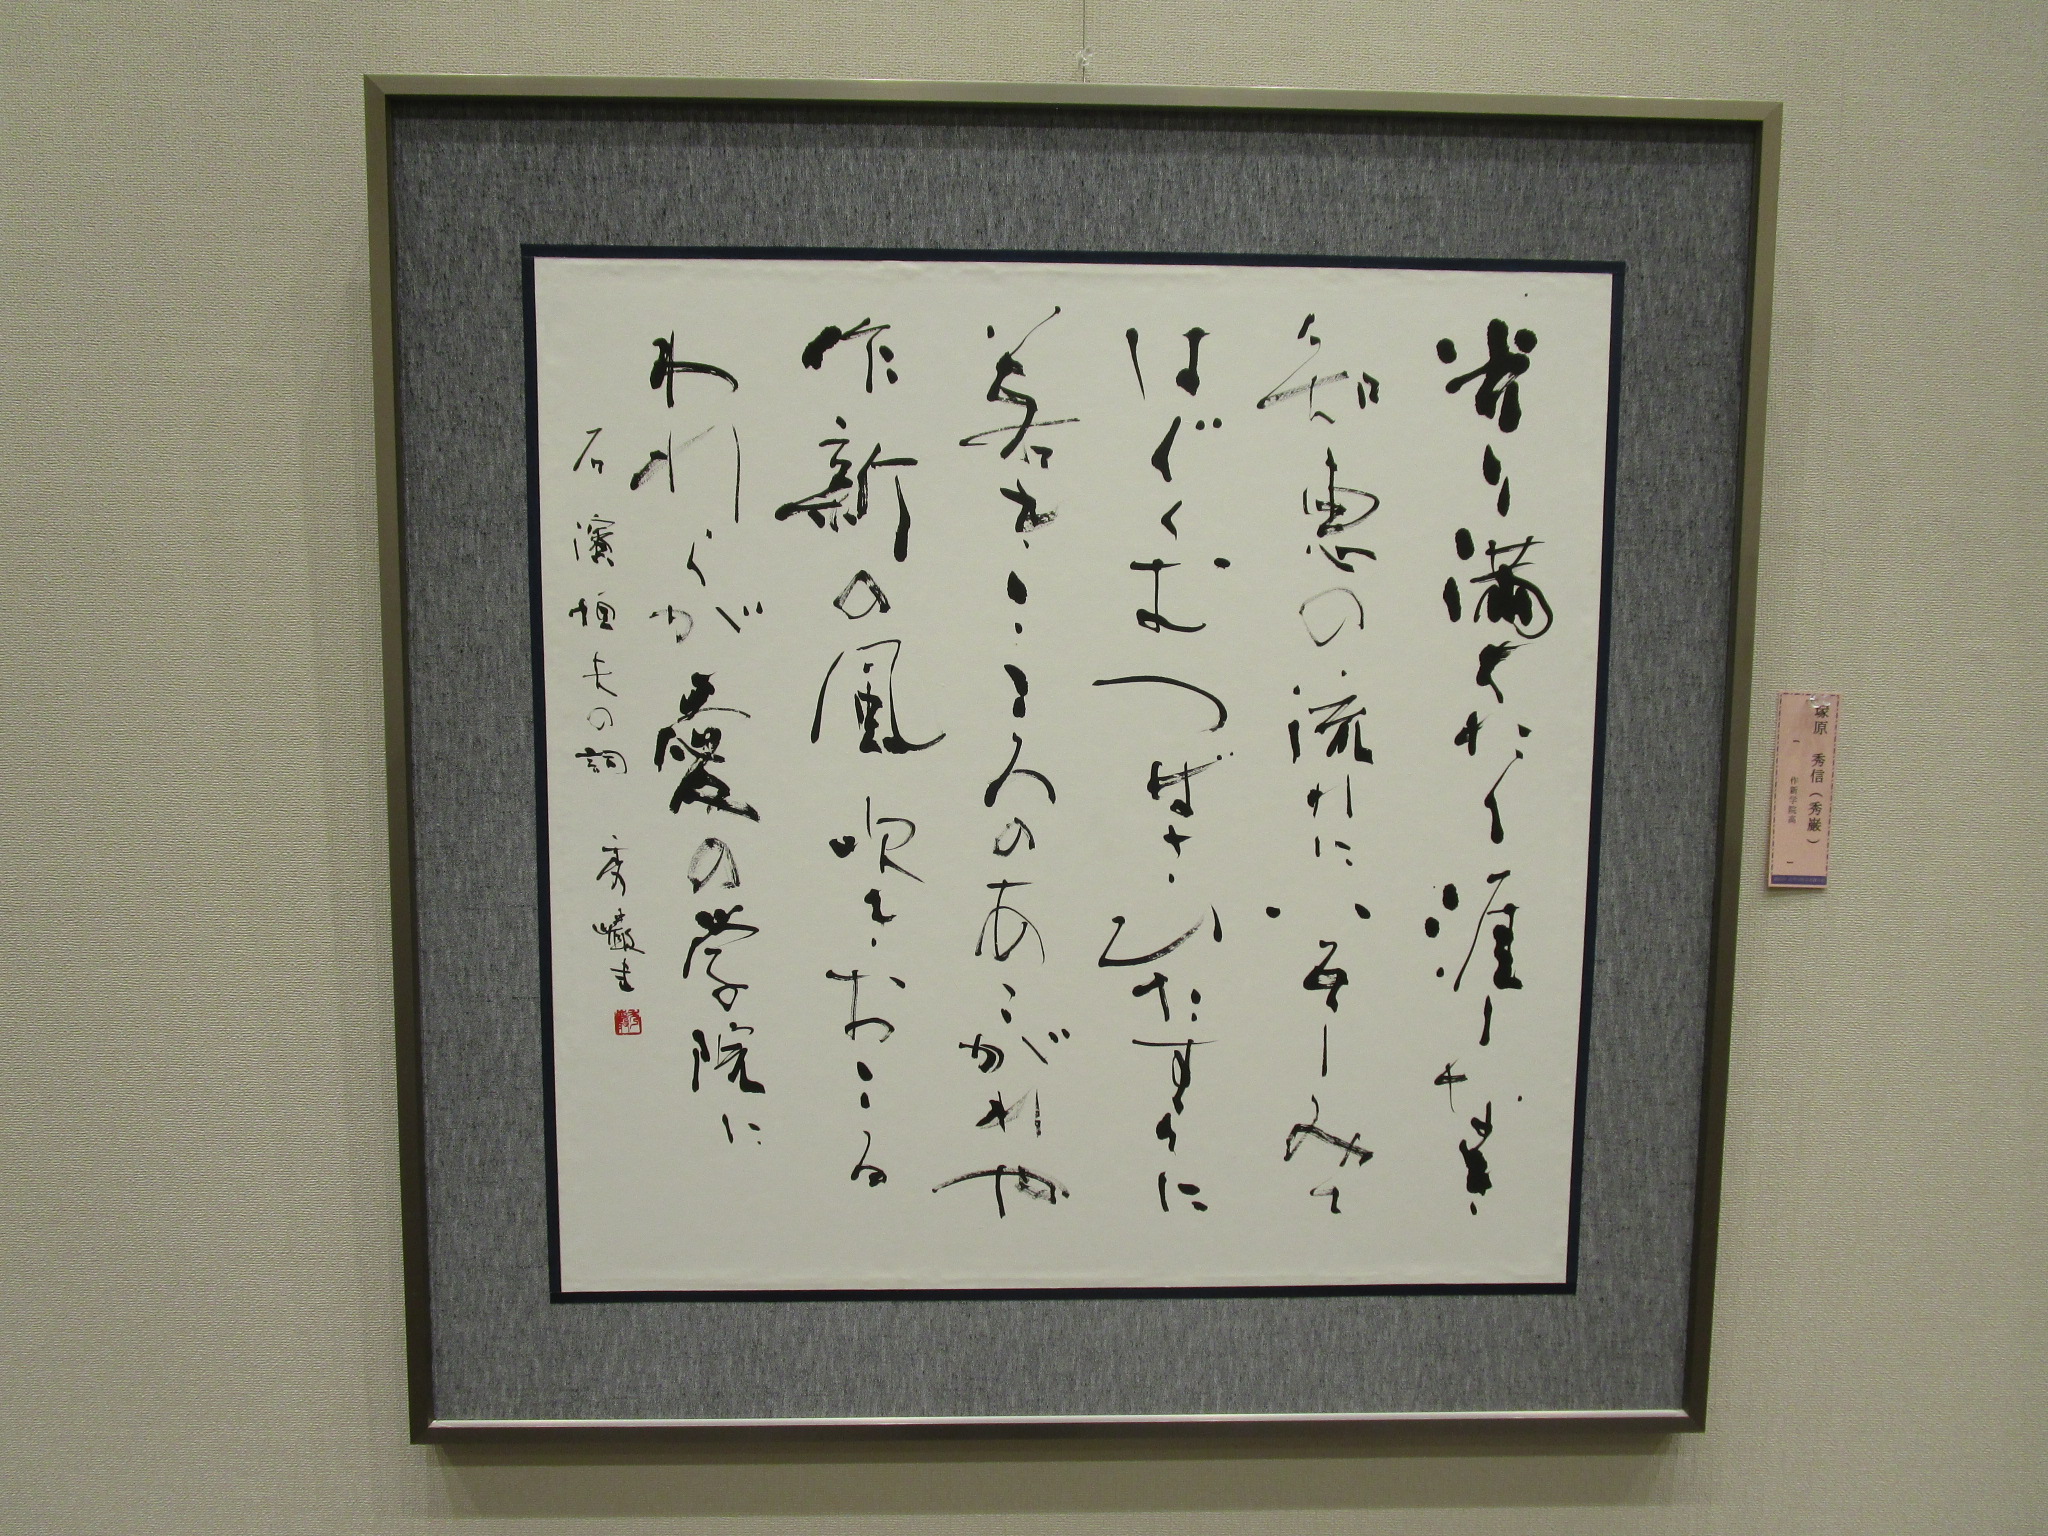 光り満ち涯しなき
知恵の流れにいそしみて
はぐくむつばさひたすらに
若きこころのあこがれや
作新の風吹きおこる
われらが愛の学院に
石濱恒夫の詞 秀巌書
塚原 秀信（秀巌）
（作新学院高）